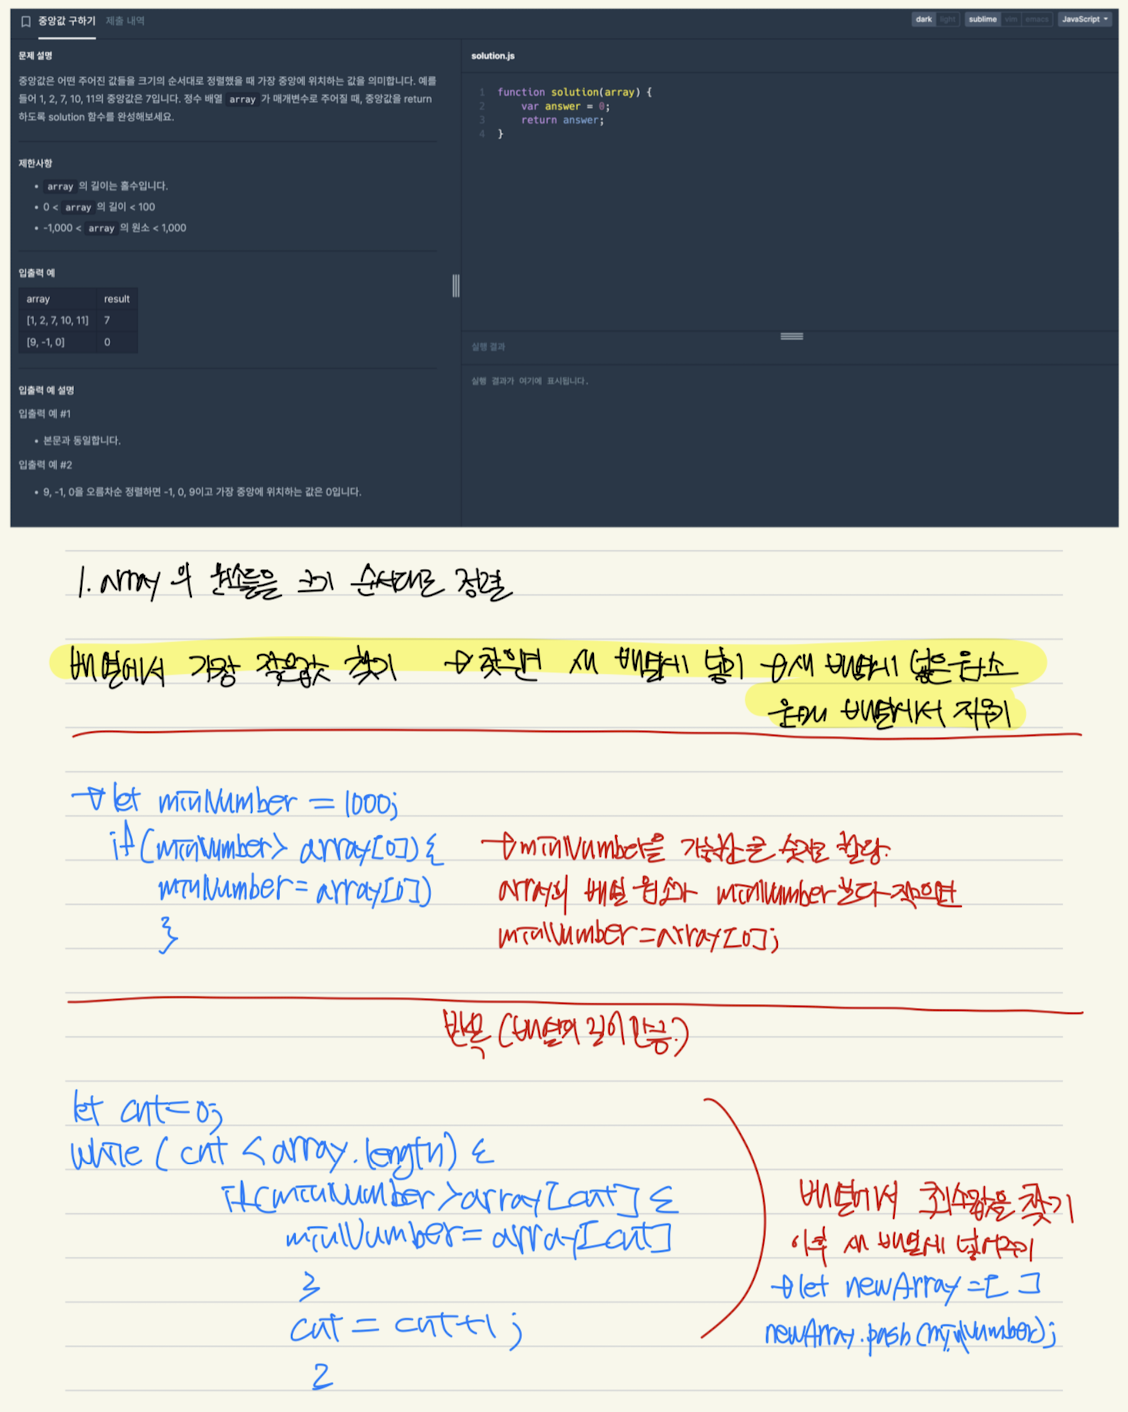 중앙값 구하기 제출 내역
dark light sublime vim emacs JavaScript
문제 설명
중앙값은 어떤 주어진 값들을 크기의 순서대로 정렬했을 때 가장 중앙에 위치하는 값을 의미합니다. 예를
들어 1, 2, 7, 10, 11의 중앙값은 7입니다. 정수 배열 array 가 매개변수로 주어질 때, 중앙값을 return
하도록 solution 함수를 완성해보세요.
제한사항
• array 의 길이는 홀수입니다.
• 0 < array 의 길이 < 100
• -1,000 < array 의 원소 < 1,000
입출력 예
array result
[1, 2, 7, 10, 11] 7
[9, -1, 0] 0
입출력 예 설명
입출력 예 #1
• 본문과 동일합니다.
입출력 예 #2
• 9, -1, 0을 오름차순 정렬하면 -1, 0, 9이고 가장 중앙에 위치하는 값은 0입니다.
solution.js
1 function solution(array) {
2 var answer = 0;
3 return answer;
4 }
실행 결과
실행 결과가 여기에 표시됩니다.
1. array 의 원소들을 크기 순서대로 정렬
배열에서 가장 작은값 찾기 → 찾으면 새 배열에 넣기 → 새 배열에 넣은 원소
원래 배열에서 지우기
→ let minNumber = 1000;
if(minNumber > array[0]) {
minNumber = array[0]
}
→ minNumber을 가능한 큰 숫자로 할당.
array의 배열 원소가 minNumber 보다 작으면
minNumber = array[0];
반복 (배열의 길이만큼.)
let cnt = 0;
while ( cnt < array.length) {
if(minNumber > array[cnt] {
minNumber = array[cnt]
}
cnt = cnt+1 ;
}
배열에서 최소값을 찾기
이후 새 배열에 넣어주기
→ let newArray = [ ]
newArray.push(minNumber);